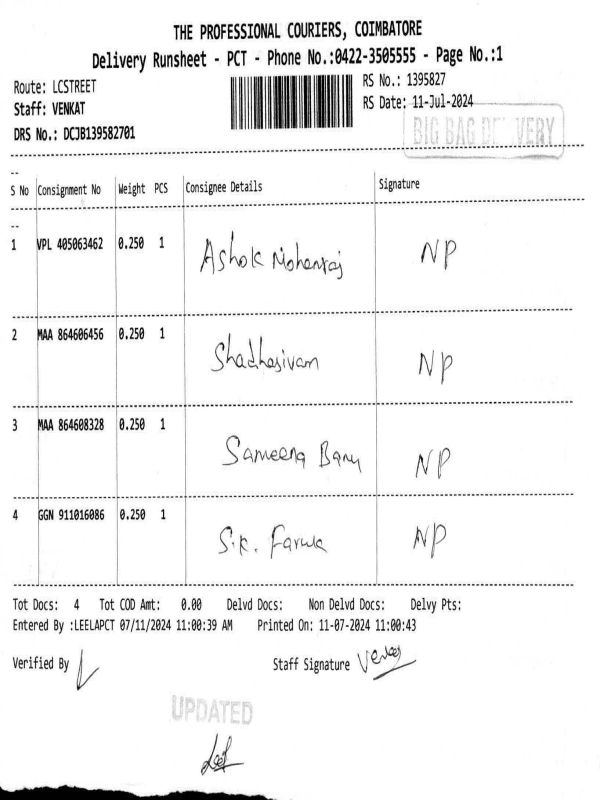 THE PROFESSIONAL COURIERS, COIMBATORE
Delivery Runsheet - PCT - Phone No.:0422-3505555 - Page No.:1
Route: LCSTREET RS No.: 1395827
Staff: VENKAT RS Date: 11-Jul-2024
DRS No.: DCJB139582701 BIG BAG DELIVERY
--
S No Consignment No Weight PCS Consignee Details Signature
--
1 VPL 405063462 0.250 1 Ashok Mohanraj NP
2 MAA 864606456 0.250 1 Shadhasivam NP
3 MAA 864608328 0.250 1 Sameena Banu NP
4 GGN 911016086 0.250 1 S.K. Faruk NP
Tot Docs: 4 Tot COD Amt: 0.00 Delvd Docs: Non Delvd Docs: Delvy Pts:
Entered By :LEELAPCT 07/11/2024 11:00:39 AM Printed On: 11-07-2024 11:00:43
Verified By Staff Signature
UPDATED